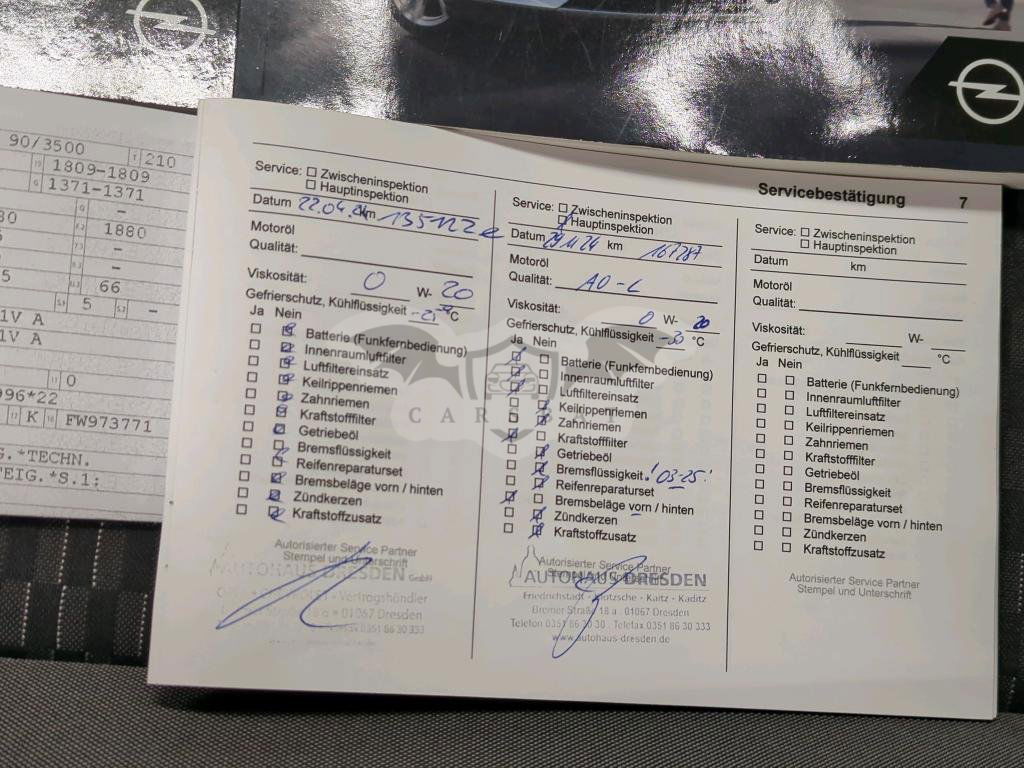 90/3500 210
1809-1809
1371-1371
-
1880
-
-
66
5 -
1V A
1V A
0
996*22
K FW973771
G.*TECHN.
TEIG.*S.1;
Servicebestätigung 7
Service: Zwischeninspektion
Hauptinspektion
Datum 22.04.24 km 135122
Motoröl
Qualität:
Viskosität: 0 W- 20
Gefrierschutz, Kühlflüssigkeit °C
Ja Nein
Batterie (Funkfernbedienung)
Innenraumluftfilter
Luftfiltereinsatz
Keilrippenriemen
Zahnriemen
Kraftstofffilter
Getriebeöl
Bremsflüssigkeit
Reifenreparaturset
Bremsbeläge vorn / hinten
Zündkerzen
Kraftstoffzusatz
Autorisierter Service Partner
Stempel und Unterschrift
AUTOHAUS DRESDEN GmbH
Vertragshändler
01067 Dresden
0351 86 30 333
Service: Zwischeninspektion
Hauptinspektion
Datum 29.11.24 km 167787
Motoröl
Qualität: AO-L
Viskosität: 0 W- 20
Gefrierschutz, Kühlflüssigkeit °C
Ja Nein
Batterie (Funkfernbedienung)
Innenraumluftfilter
Luftfiltereinsatz
Keilrippenriemen
Zahnriemen
Kraftstofffilter
Getriebeöl
Bremsflüssigkeit ! 03-25!
Reifenreparaturset
Bremsbeläge vorn / hinten
Zündkerzen
Kraftstoffzusatz
Autorisierter Service Partner
Stempel und Unterschrift
AUTOHAUS DRESDEN
Friedrichstadt - Klotzsche - Kaitz - Kaditz
Bremer Straße 18 a . 01067 Dresden
Telefon 0351 86 30 30 . Telefax 0351 86 30 333
www.autohaus-dresden.de
Service: Zwischeninspektion
Hauptinspektion
Datum km
Motoröl
Qualität:
Viskosität: W-
Gefrierschutz, Kühlflüssigkeit °C
Ja Nein
Batterie (Funkfernbedienung)
Innenraumluftfilter
Luftfiltereinsatz
Keilrippenriemen
Zahnriemen
Kraftstofffilter
Getriebeöl
Bremsflüssigkeit
Reifenreparaturset
Bremsbeläge vorn / hinten
Zündkerzen
Kraftstoffzusatz
Autorisierter Service Partner
Stempel und Unterschrift